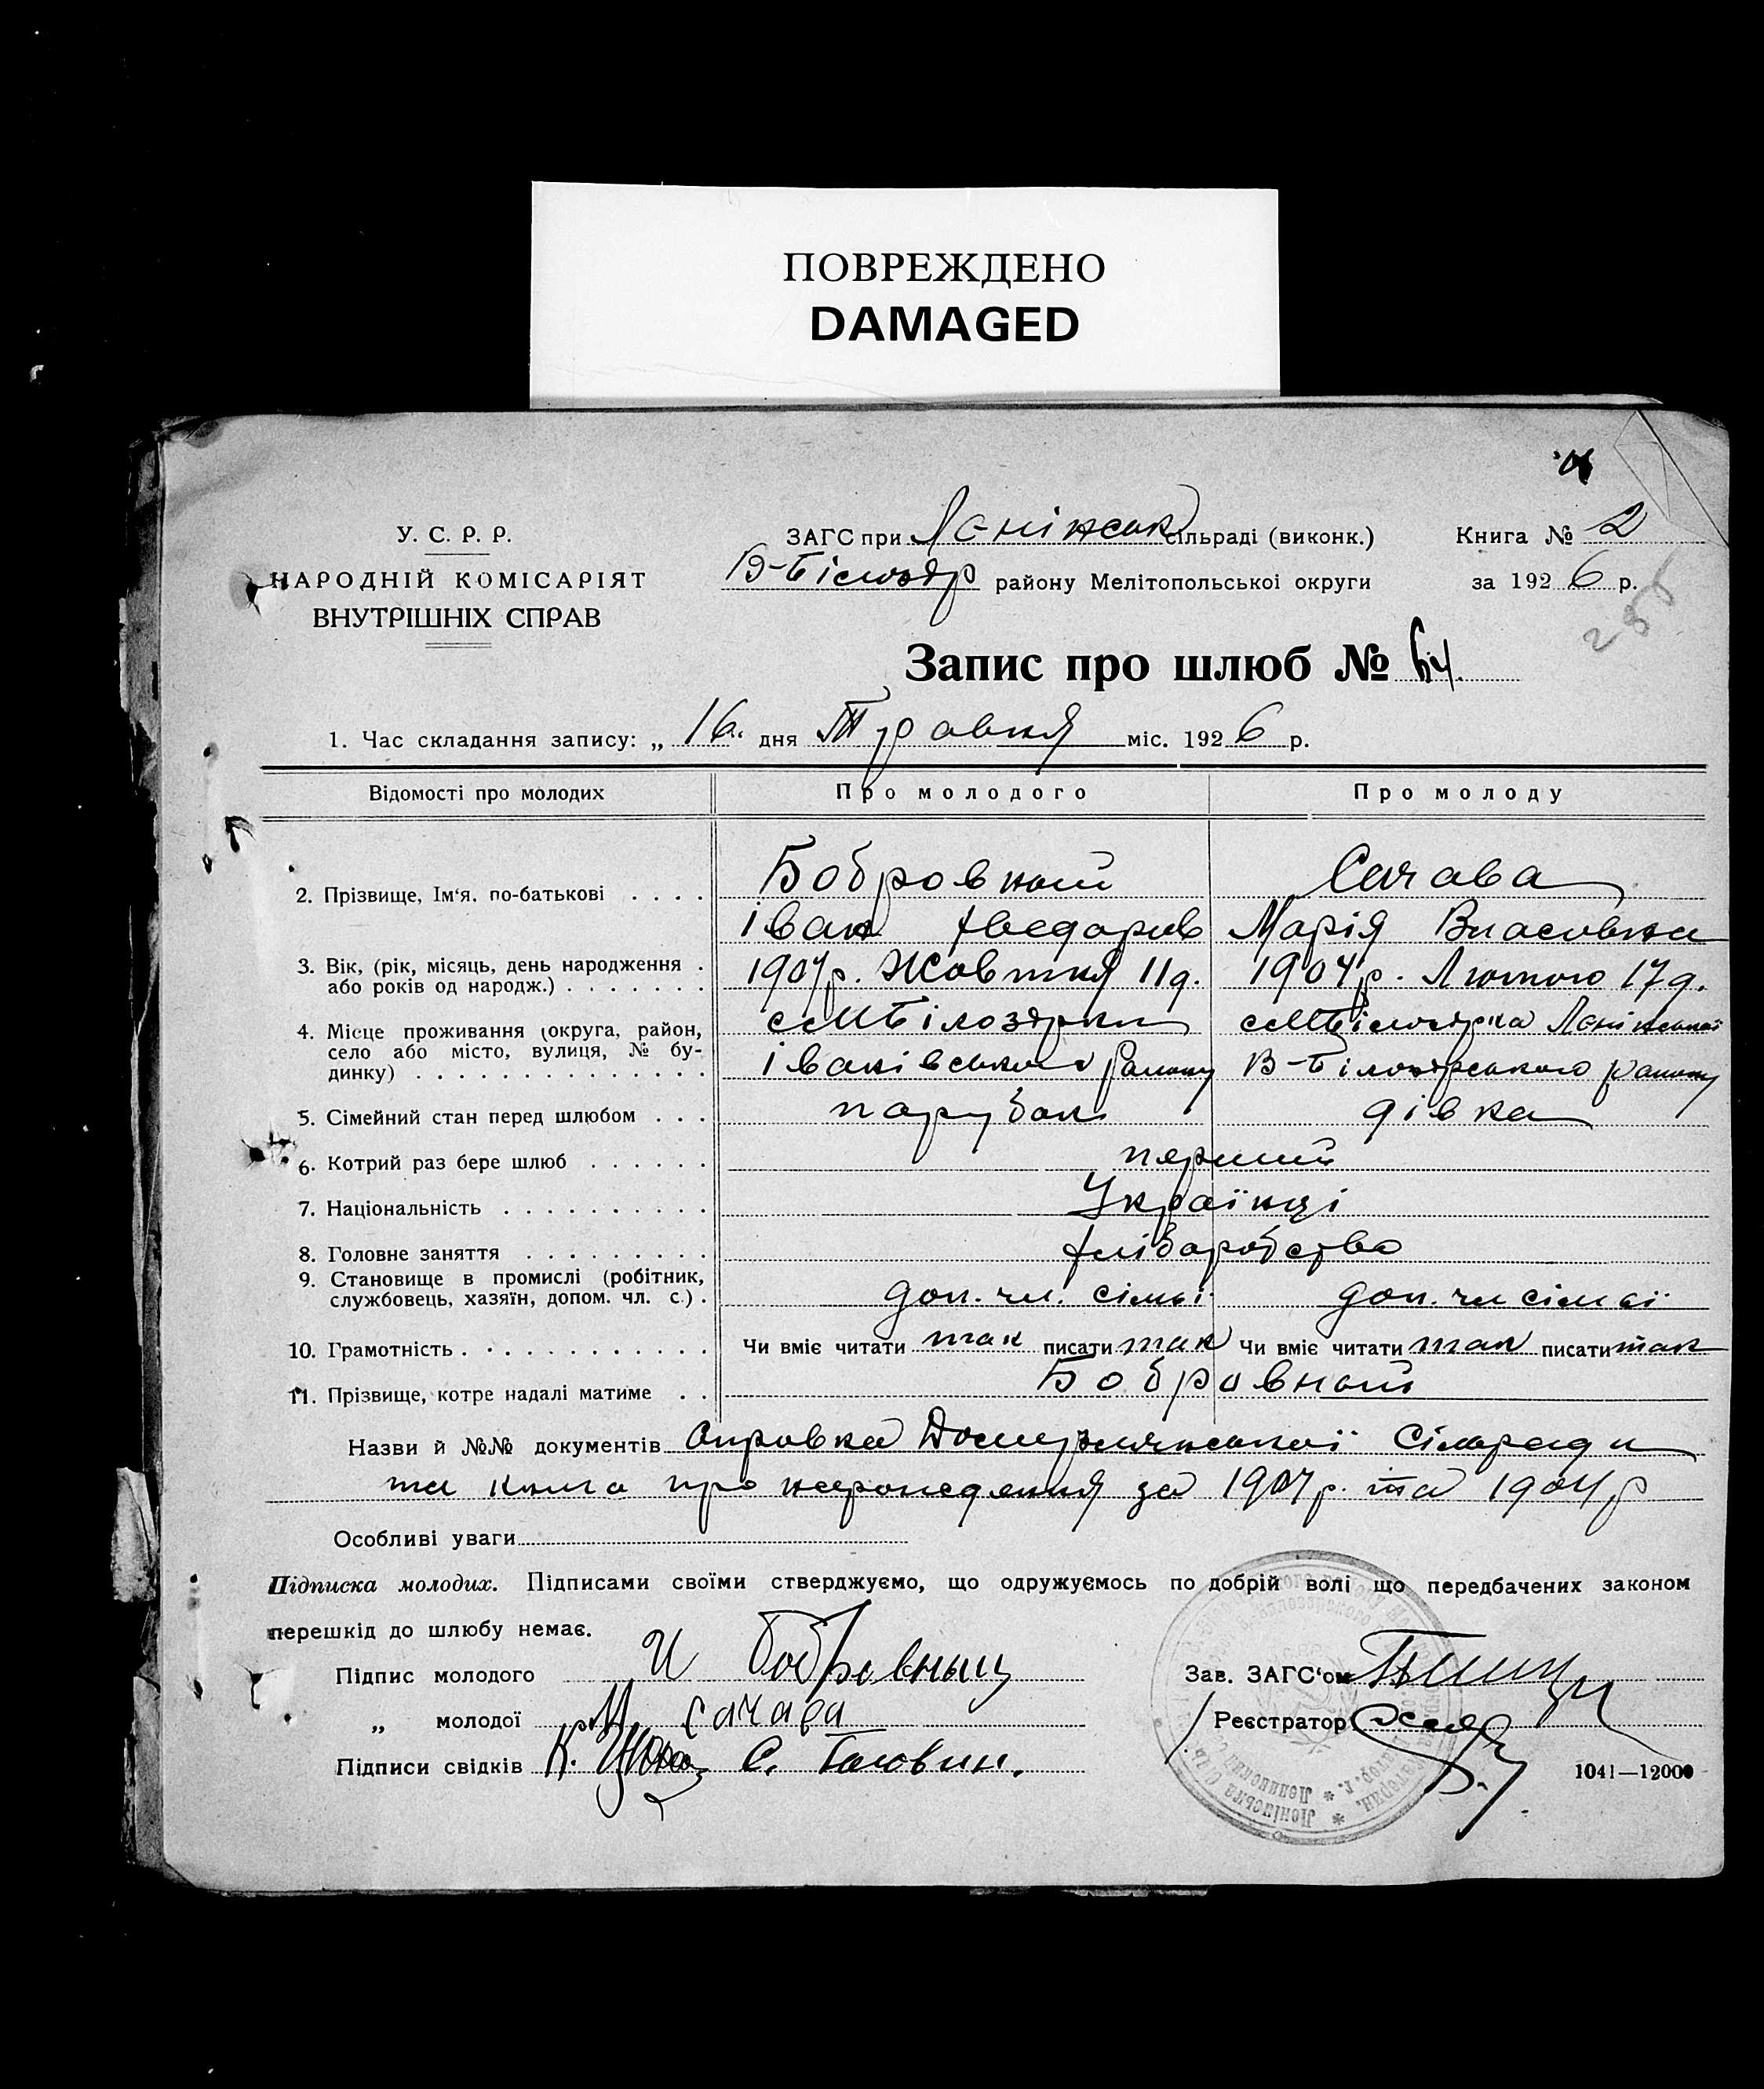 ПОВРЕЖДЕНО
DAMAGED
У. С. Р. Р.
НАРОДНІЙ КОМІСАРІЯТ
ВНУТРІШНІХ СПРАВ
ЗАГС при Ленінськ сільраді (виконк.)
В-Білозер району Мелітопольської округи
Книга № 2
за 1926 р.
285
Запис про шлюб № 64.
1. Час складання запису: „ 16 " дня Травня міс. 1926 р.
Відомості про молодих Про молодого Про молоду
2. Прізвище, Ім'я, по-батькові . . . . Бобровний Сачава
Іван Хведорів Марія Власовна
3. Вік, (рік, місяць, день народження . 1907р. Жовтня 11 д. 1904р. Лютого 17 д.
або років од народж.) . . . . . . .
4. Місце проживання (округа, район, село або місто, вулиця, № будинку) . . . . . . . . . . . . . . с М Білозірки с М Білозірка Ленінської
Іванівського району В-Білозірського району
5. Сімейний стан перед шлюбом . . . парубок дівка
6. Котрий раз бере шлюб . . . . . . перший
7. Національність . . . . . . . . . . Українці
8. Головне заняття . . . . . . . . . хліборобство
9. Становище в промислі (робітник, службовець, хазяїн, допом. чл. с.) . доп. чл. сімьї доп. чл сімьї
10. Грамотність . . . . . . . . . . . Чи вміє читати так писати так Чи вміє читати так писати так
11. Прізвище, котре надалі матиме . . Бобровний
Назви й №№ документів Справка Сільради
та книга про народження за 1907 р. та 1904 р
Особливі уваги
Підписка молодих. Підписами своїми стверджуємо, що одружуємось по добрій волі що передбачених законом
перешкід до шлюбу немає.
Підпис молодого И Бобровный
„ молодої М. Сачава
Підписи свідків К. С.
Зав. ЗАГС'ом
Реєстратор
1041—12000